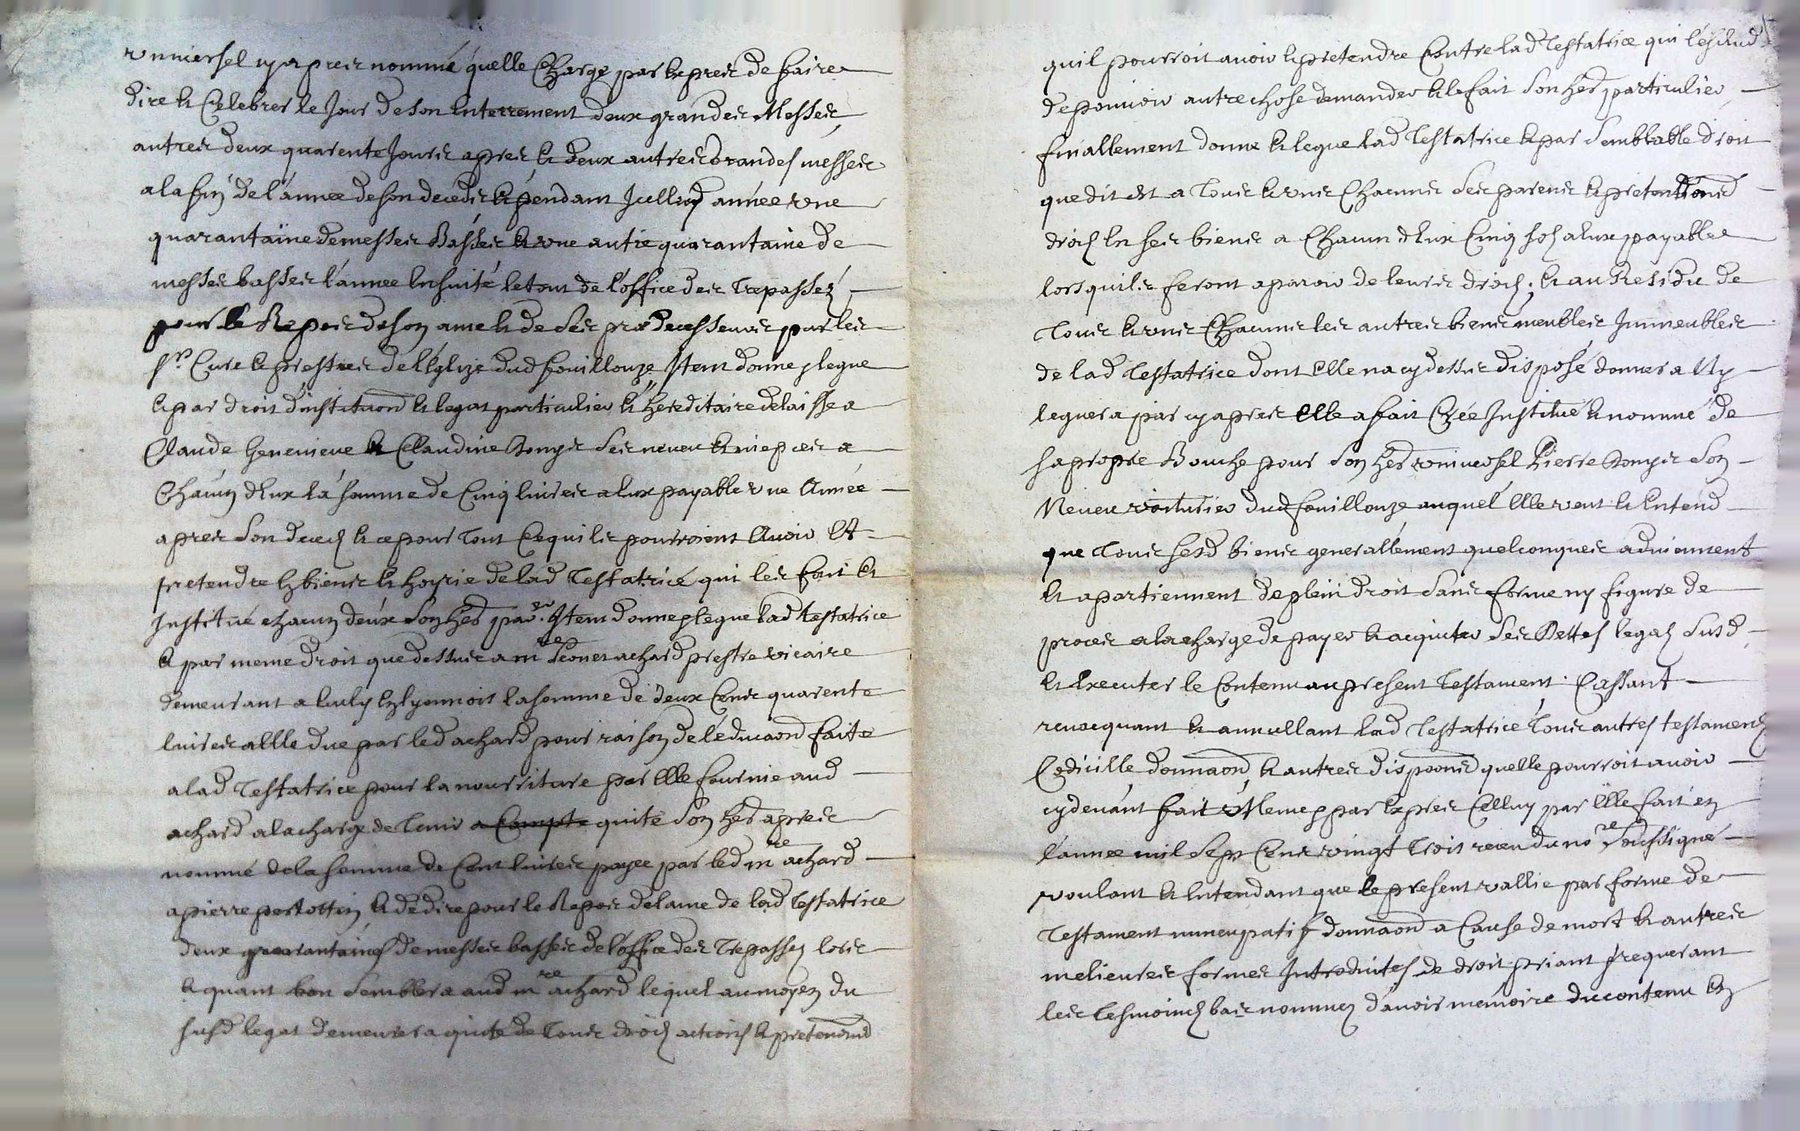 universel cy apres nommé quelle Charge par Expres de faire
dire et Celebrer le Jour de son Enterrement deux grandes Messes
autres deux quarente Jours apres et deux autres Grandes messes
a la fin de l'année de son deceds et pendant Jcelluy année une
quarantaine de messes Basses et une autre quarantaine de
messes basses l'annee Ensuité le tout de l'office des Trepassez
pour le Repos de son ame et de ses predecesseurs par les
sr. Cure et prestres de l'Eglize dud fouillouze Jtem donne et legue
et par droit d'institaon et legat particulier et hereditaire delaisse a
Claude Genevieve et Claudine Bonys ses neveu et niepces a
Chacun d'Eux la somme de Cinq livres a Eux payable une Année
apres son deceds et ce pour Tout Ce qu'ils pourroient Avoir Et
pretendre Es biens et hoyrie de lad Testatrice qui les fait et
Institué chacun deux son hed par.er Jtem donne et legue lad testatrice
et par meme droit que dessus a mre achard prestre vicaire
demeurant a En lyonnois la somme de deux Cens quarente
livres a Elle due par led achard pour raison de l'educaon faite
a lad Testatrice pour la nourriture par Elle fournie aud
achard a la charge de Tenir a Compte quite son hed apres
nommé de la somme de Cent livres payee par led mre achard
a pierre et de dire pour le Repos de lame de lad Testatrice
deux quarantaines de messes basses de l'office des Trepassez lors
et quant bon semblera aud mre achard lequel au moyen du
susd legat demeurera quite de Tous droicts actions et pretentions
quil pourroit avoir et pretendre Contre lad Testatrice qui
de pouvoir autre chose demander et le fait son hed particulier
finallement donne et legue lad Testatrice et par semblable droit
que dit est a Tous et uns Chacuns ses parens et pretendans
droict En ses biens a Chacun d'Eux Cinq sols a Eux payables
lors quils feront aparoir de leurs droicts. et au Residu de
Tous et uns Chacuns les autres biens meubles Jmmeubles
de lad Testatrice dont Elle na cy dessus disposé donnera Ny
leguera par cy apres Elle a fait Créé Institué et nommé de
sa propre Bouche pour son hed universel Pierre Bonys son
Neveu voiturier dud fouillouze auquel Elle veut et Entend
que Tous sesd biens generallement quelconques adviennent
et apartiennent de plein droit sans forme ny figure de
proces a la charge de payer et acquiter ses Dettes legats susd
et Executer le Contenu au present Testament. Cassant
revocquant et annullant lad Testatrice Tous autres testaments
Codicille donnaon et autres dispoons quelle pourroit avoir
cy devant fait et Meme par Expres Celluy par Elle fait en
l'année mil sept Cens vingt Trois receu du nore soussigné
voulant et Entendant que le present vallie par forme de
Testament nuncupatif donnaon a Cause de mort et autres
melieures formes Introduites de droit priant et requerant
les Tesmoins bas nommez d'avoir memoire du contenu En